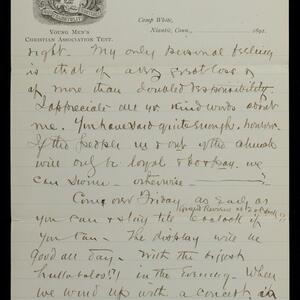 Camp White,
Niantic, Conn., 1891.
YOUNG MEN'S
CHRISTIAN ASSOCIATION TENT.
right. My only personal feeling
is that of a very great loss &
of more than doubled responsibility.
I appreciate all yr kind words about
me. You have said quite enough, however.
If the people in & out of the
will only be loyal & we
can swim — otherwise — ?
Come over Friday as early as
you can & stay till as late as
you can. The display will be
good all day. With the biggest
hullabaloo!! in the evening. When
we wind up with a concert in